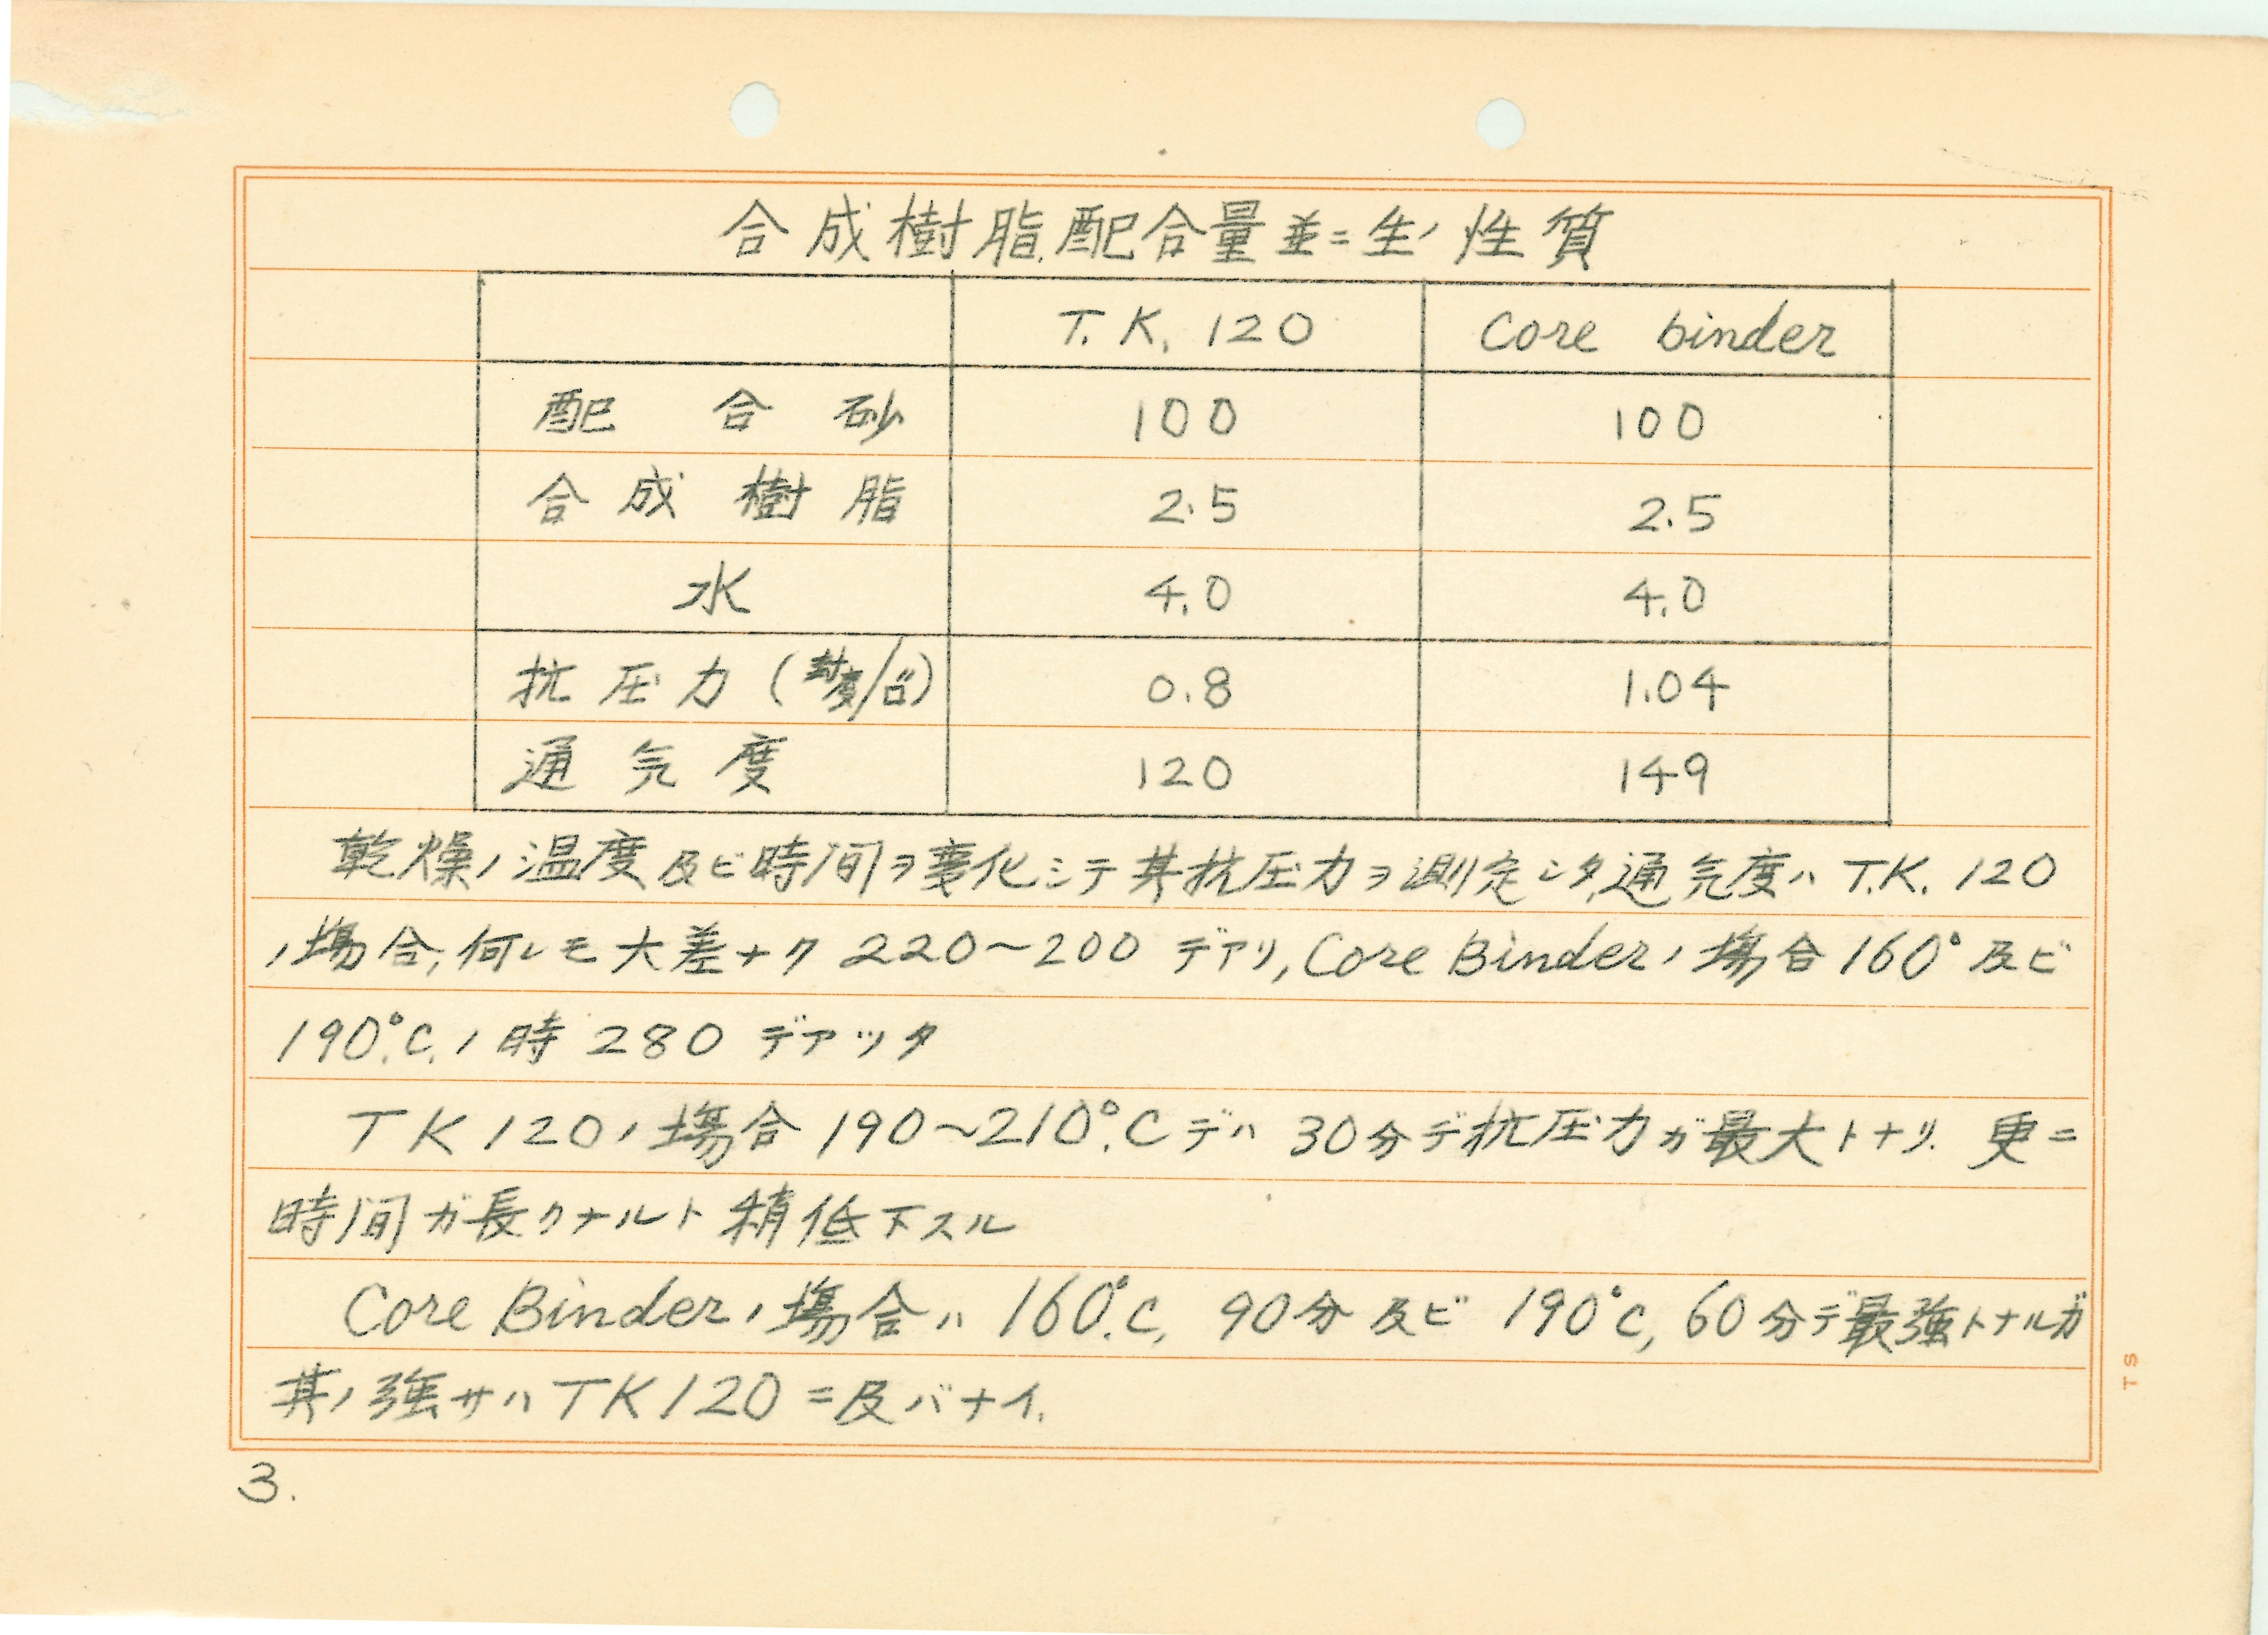 合成樹脂配合量並ニ生ノ性質
T.K. 120 Core binder
配合砂 100 100
合成樹脂 2.5 2.5
水 4.0 4.0
抗圧力 (封度/□") 0.8 1.04
通気度 120 149
乾燥ノ温度及ビ時间ヲ変化シテ其抗圧力ヲ測定シタ,通気度ハ T.K. 120
ノ場合,何レモ大差ナク 220~200 デアリ, Core Binderノ場合 160° 及ビ
190°C.ノ時 280 デアッタ
TK 120ノ場合 190~210°C デハ 30分デ抗圧力ガ最大トナリ. 更ニ
時间ガ長クナルト稍低下スル
Core Binderノ場合ハ 160°C, 90分及ビ 190°C, 60分デ最強トナルガ
其ノ強サハ TK120 ニ及バナイ.
TS
3.